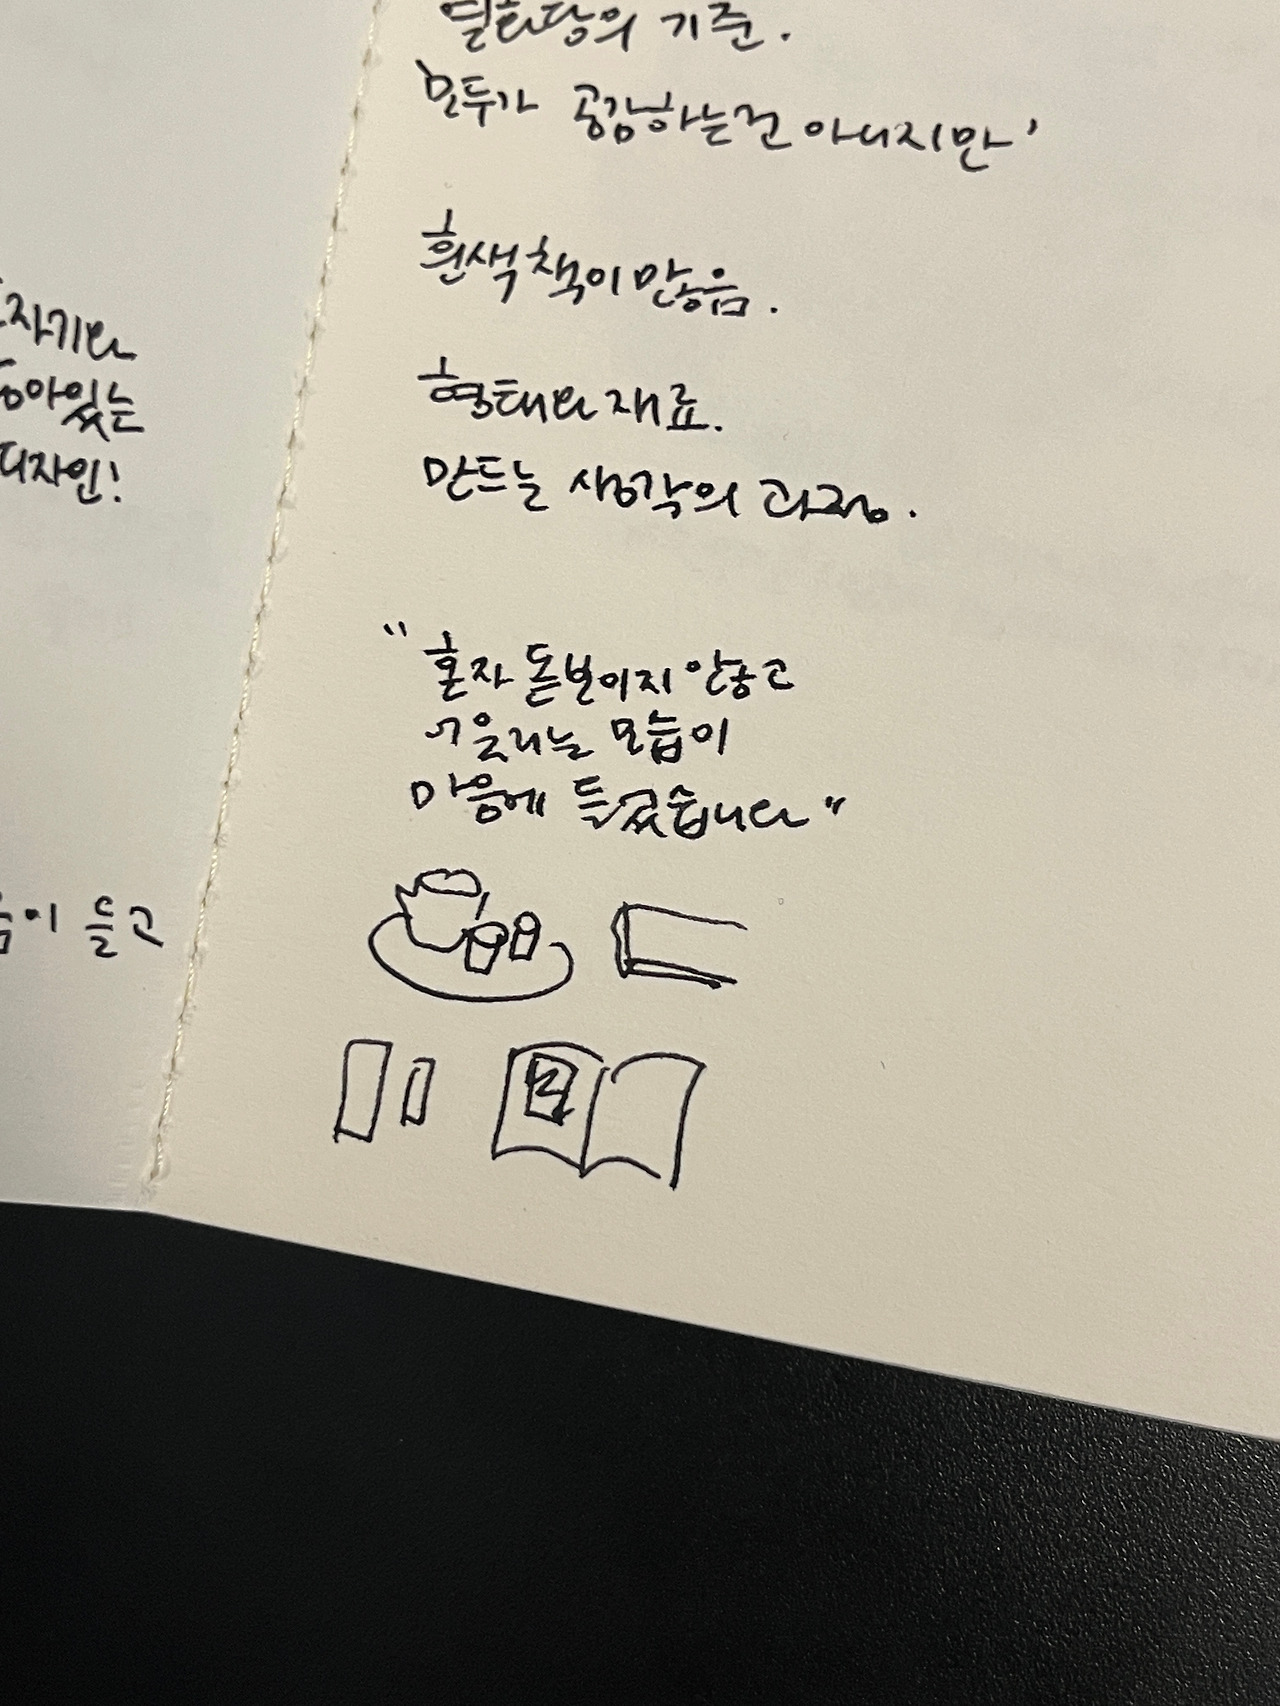 자기와
닮아있는
디자인!
이 들고
열화당의 기준.
모두가 공감하는건 아니지만,
흰색 책이 많음.
형태와 재료.
만드는 생각의 과정.
"혼자 돋보이지 않고
어울리는 모습이
마음에 들었습니다"